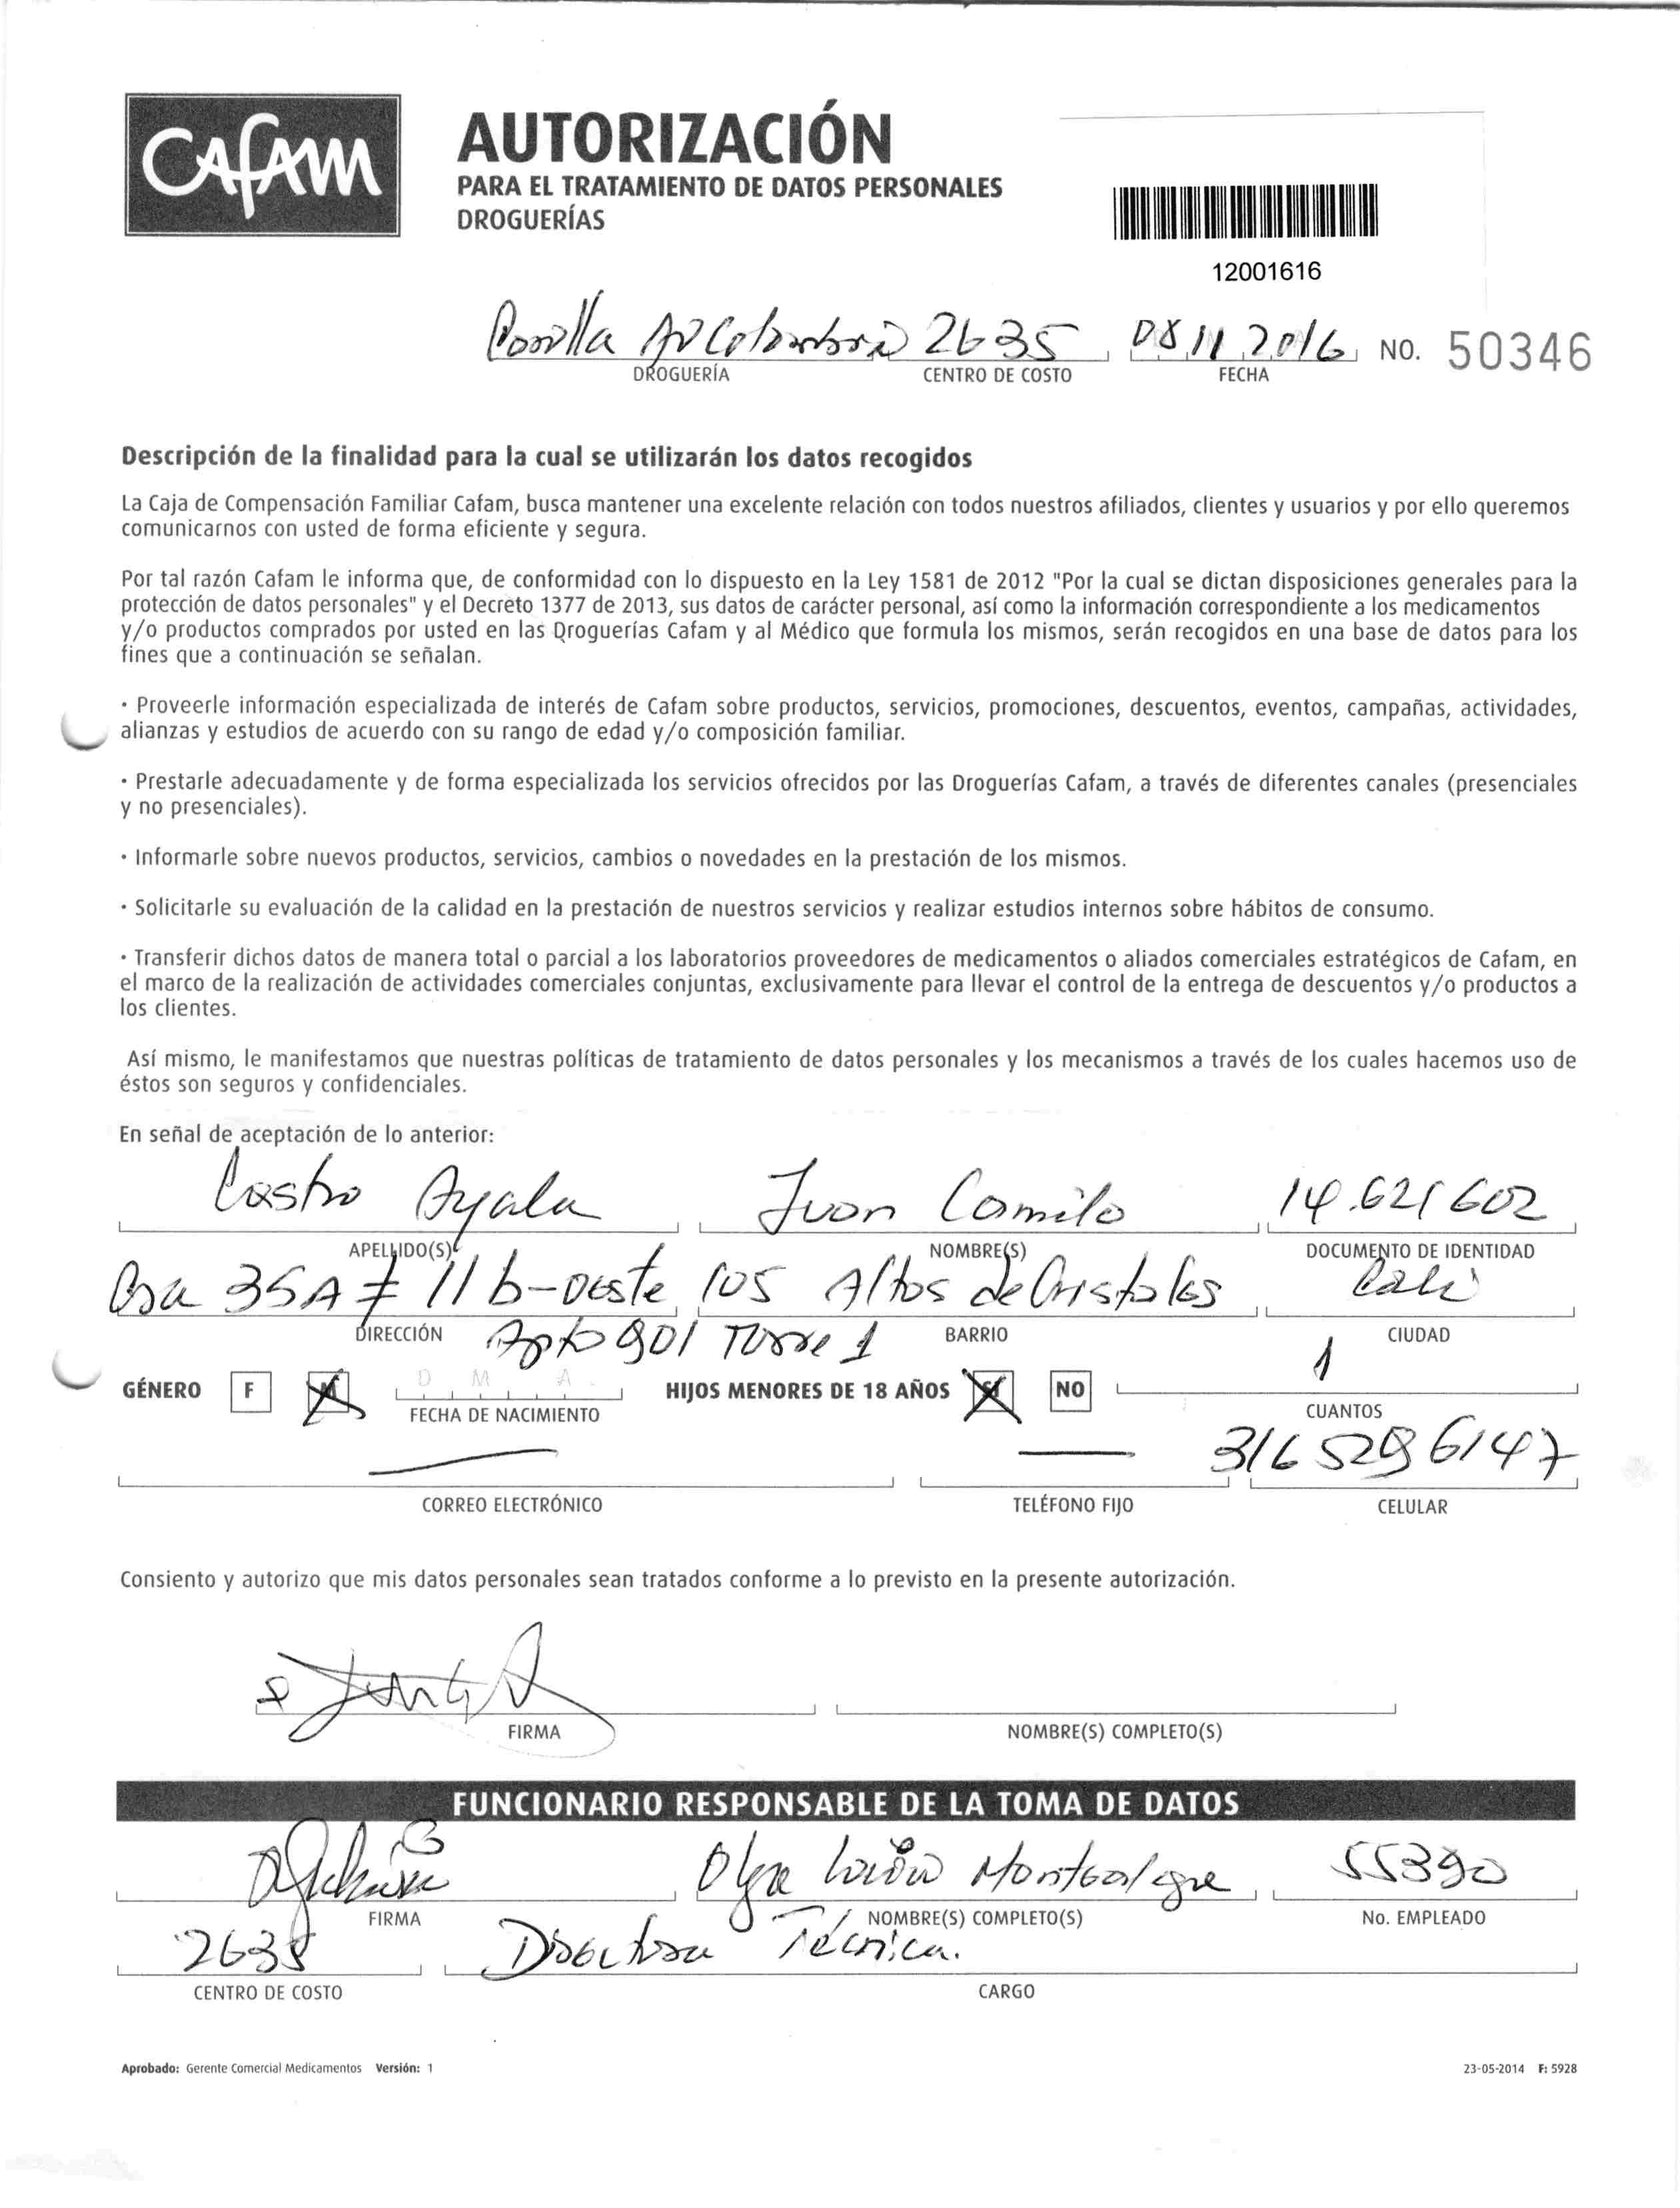 CAFAM
AUTORIZACIÓN
PARA EL TRATAMIENTO DE DATOS PERSONALES
DROGUERÍAS
12001616
Av Colombia 2635 08 11 2016 NO. 50346
DROGUERÍA CENTRO DE COSTO FECHA
Descripción de la finalidad para la cual se utilizarán los datos recogidos
La Caja de Compensación Familiar Cafam, busca mantener una excelente relación con todos nuestros afiliados, clientes y usuarios y por ello queremos
comunicarnos con usted de forma eficiente y segura.
Por tal razón Cafam le informa que, de conformidad con lo dispuesto en la Ley 1581 de 2012 "Por la cual se dictan disposiciones generales para la
protección de datos personales" y el Decreto 1377 de 2013, sus datos de carácter personal, así como la información correspondiente a los medicamentos
y/o productos comprados por usted en las Droguerías Cafam y al Médico que formula los mismos, serán recogidos en una base de datos para los
fines que a continuación se señalan.
· Proveerle información especializada de interés de Cafam sobre productos, servicios, promociones, descuentos, eventos, campañas, actividades,
alianzas y estudios de acuerdo con su rango de edad y/o composición familiar.
· Prestarle adecuadamente y de forma especializada los servicios ofrecidos por las Droguerías Cafam, a través de diferentes canales (presenciales
y no presenciales).
· Informarle sobre nuevos productos, servicios, cambios o novedades en la prestación de los mismos.
· Solicitarle su evaluación de la calidad en la prestación de nuestros servicios y realizar estudios internos sobre hábitos de consumo.
· Transferir dichos datos de manera total o parcial a los laboratorios proveedores de medicamentos o aliados comerciales estratégicos de Cafam, en
el marco de la realización de actividades comerciales conjuntas, exclusivamente para llevar el control de la entrega de descuentos y/o productos a
los clientes.
Así mismo, le manifestamos que nuestras políticas de tratamiento de datos personales y los mecanismos a través de los cuales hacemos uso de
éstos son seguros y confidenciales.
En señal de aceptación de lo anterior:
Castro Ayala Juan Camilo 14.621602
APELLIDO(S) NOMBRE(S) DOCUMENTO DE IDENTIDAD
Cra 35A # 11b-oeste 105 Altos de Cristales Cali
DIRECCIÓN BARRIO CIUDAD
Apto 901 Torre 1
GÉNERO F M D M A HIJOS MENORES DE 18 AÑOS SI NO 1
FECHA DE NACIMIENTO CUANTOS
316 5296147
CORREO ELECTRÓNICO TELÉFONO FIJO CELULAR
Consiento y autorizo que mis datos personales sean tratados conforme a lo previsto en la presente autorización.
FIRMA NOMBRE(S) COMPLETO(S)
FUNCIONARIO RESPONSABLE DE LA TOMA DE DATOS
Olga Lucía Montealegre 55390
FIRMA NOMBRE(S) COMPLETO(S) No. EMPLEADO
2635 Directora Técnica.
CENTRO DE COSTO CARGO
Aprobado: Gerente Comercial Medicamentos Versión: 1 23-05-2014 F: 5928